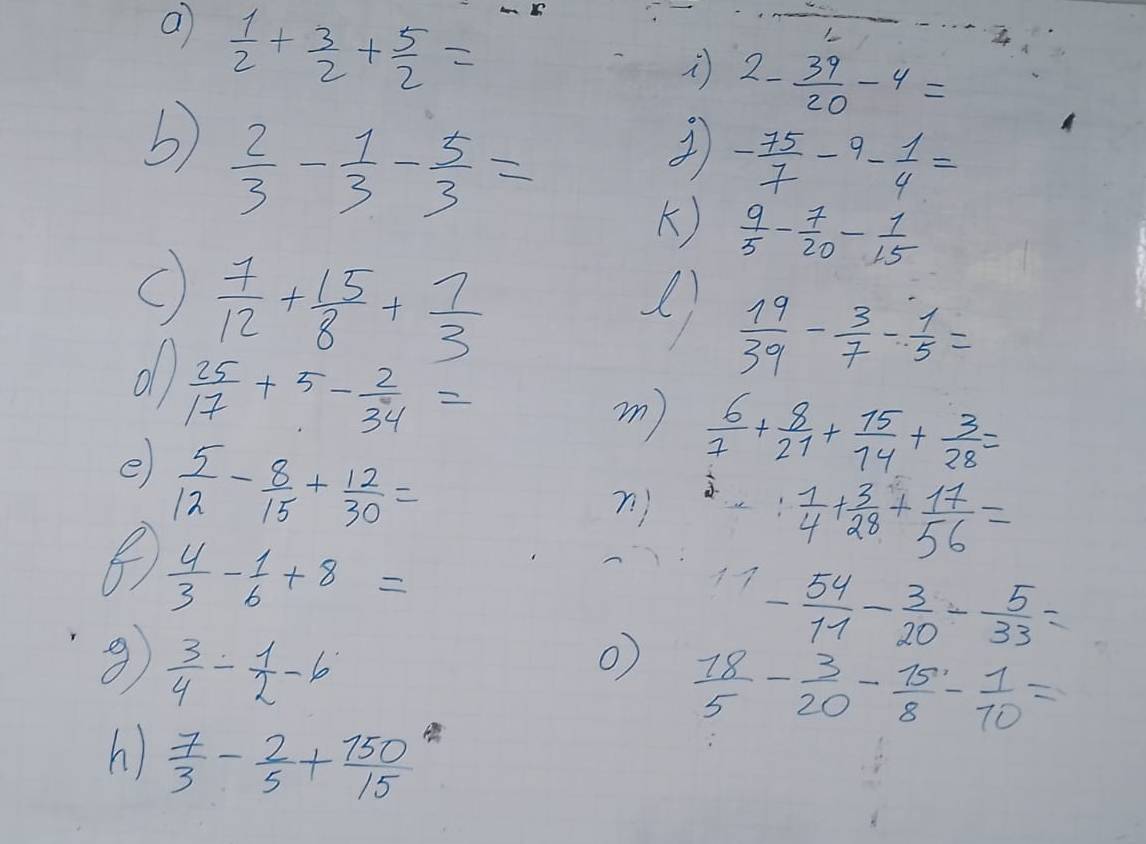 a) 1/2 + 3/2 + 5/2 =
b) 2/3 - 1/3 - 5/3 =
c) 7/12 + 15/8 + 1/3
d) 25/17 + 5 - 2/34 =
e) 5/12 - 8/15 + 12/30 =
f) 4/3 - 1/6 + 8 =
g) 3/4 - 1/2 - 6
h) 7/3 - 2/5 + 150/15
i) 2 - 39/20 - 4 =
j) - 75/7 - 9 - 1/4 =
k) 9/5 - 7/20 - 1/15
l) 19/39 - 3/7 - 1/5 =
m) 6/7 + 8/21 + 15/14 + 3/28 =
n) 1/4 + 3/28 + 17/56 =
- 54/11 - 3/20 - 5/33 =
o) 18/5 - 3/20 - 15/8 - 1/10 =